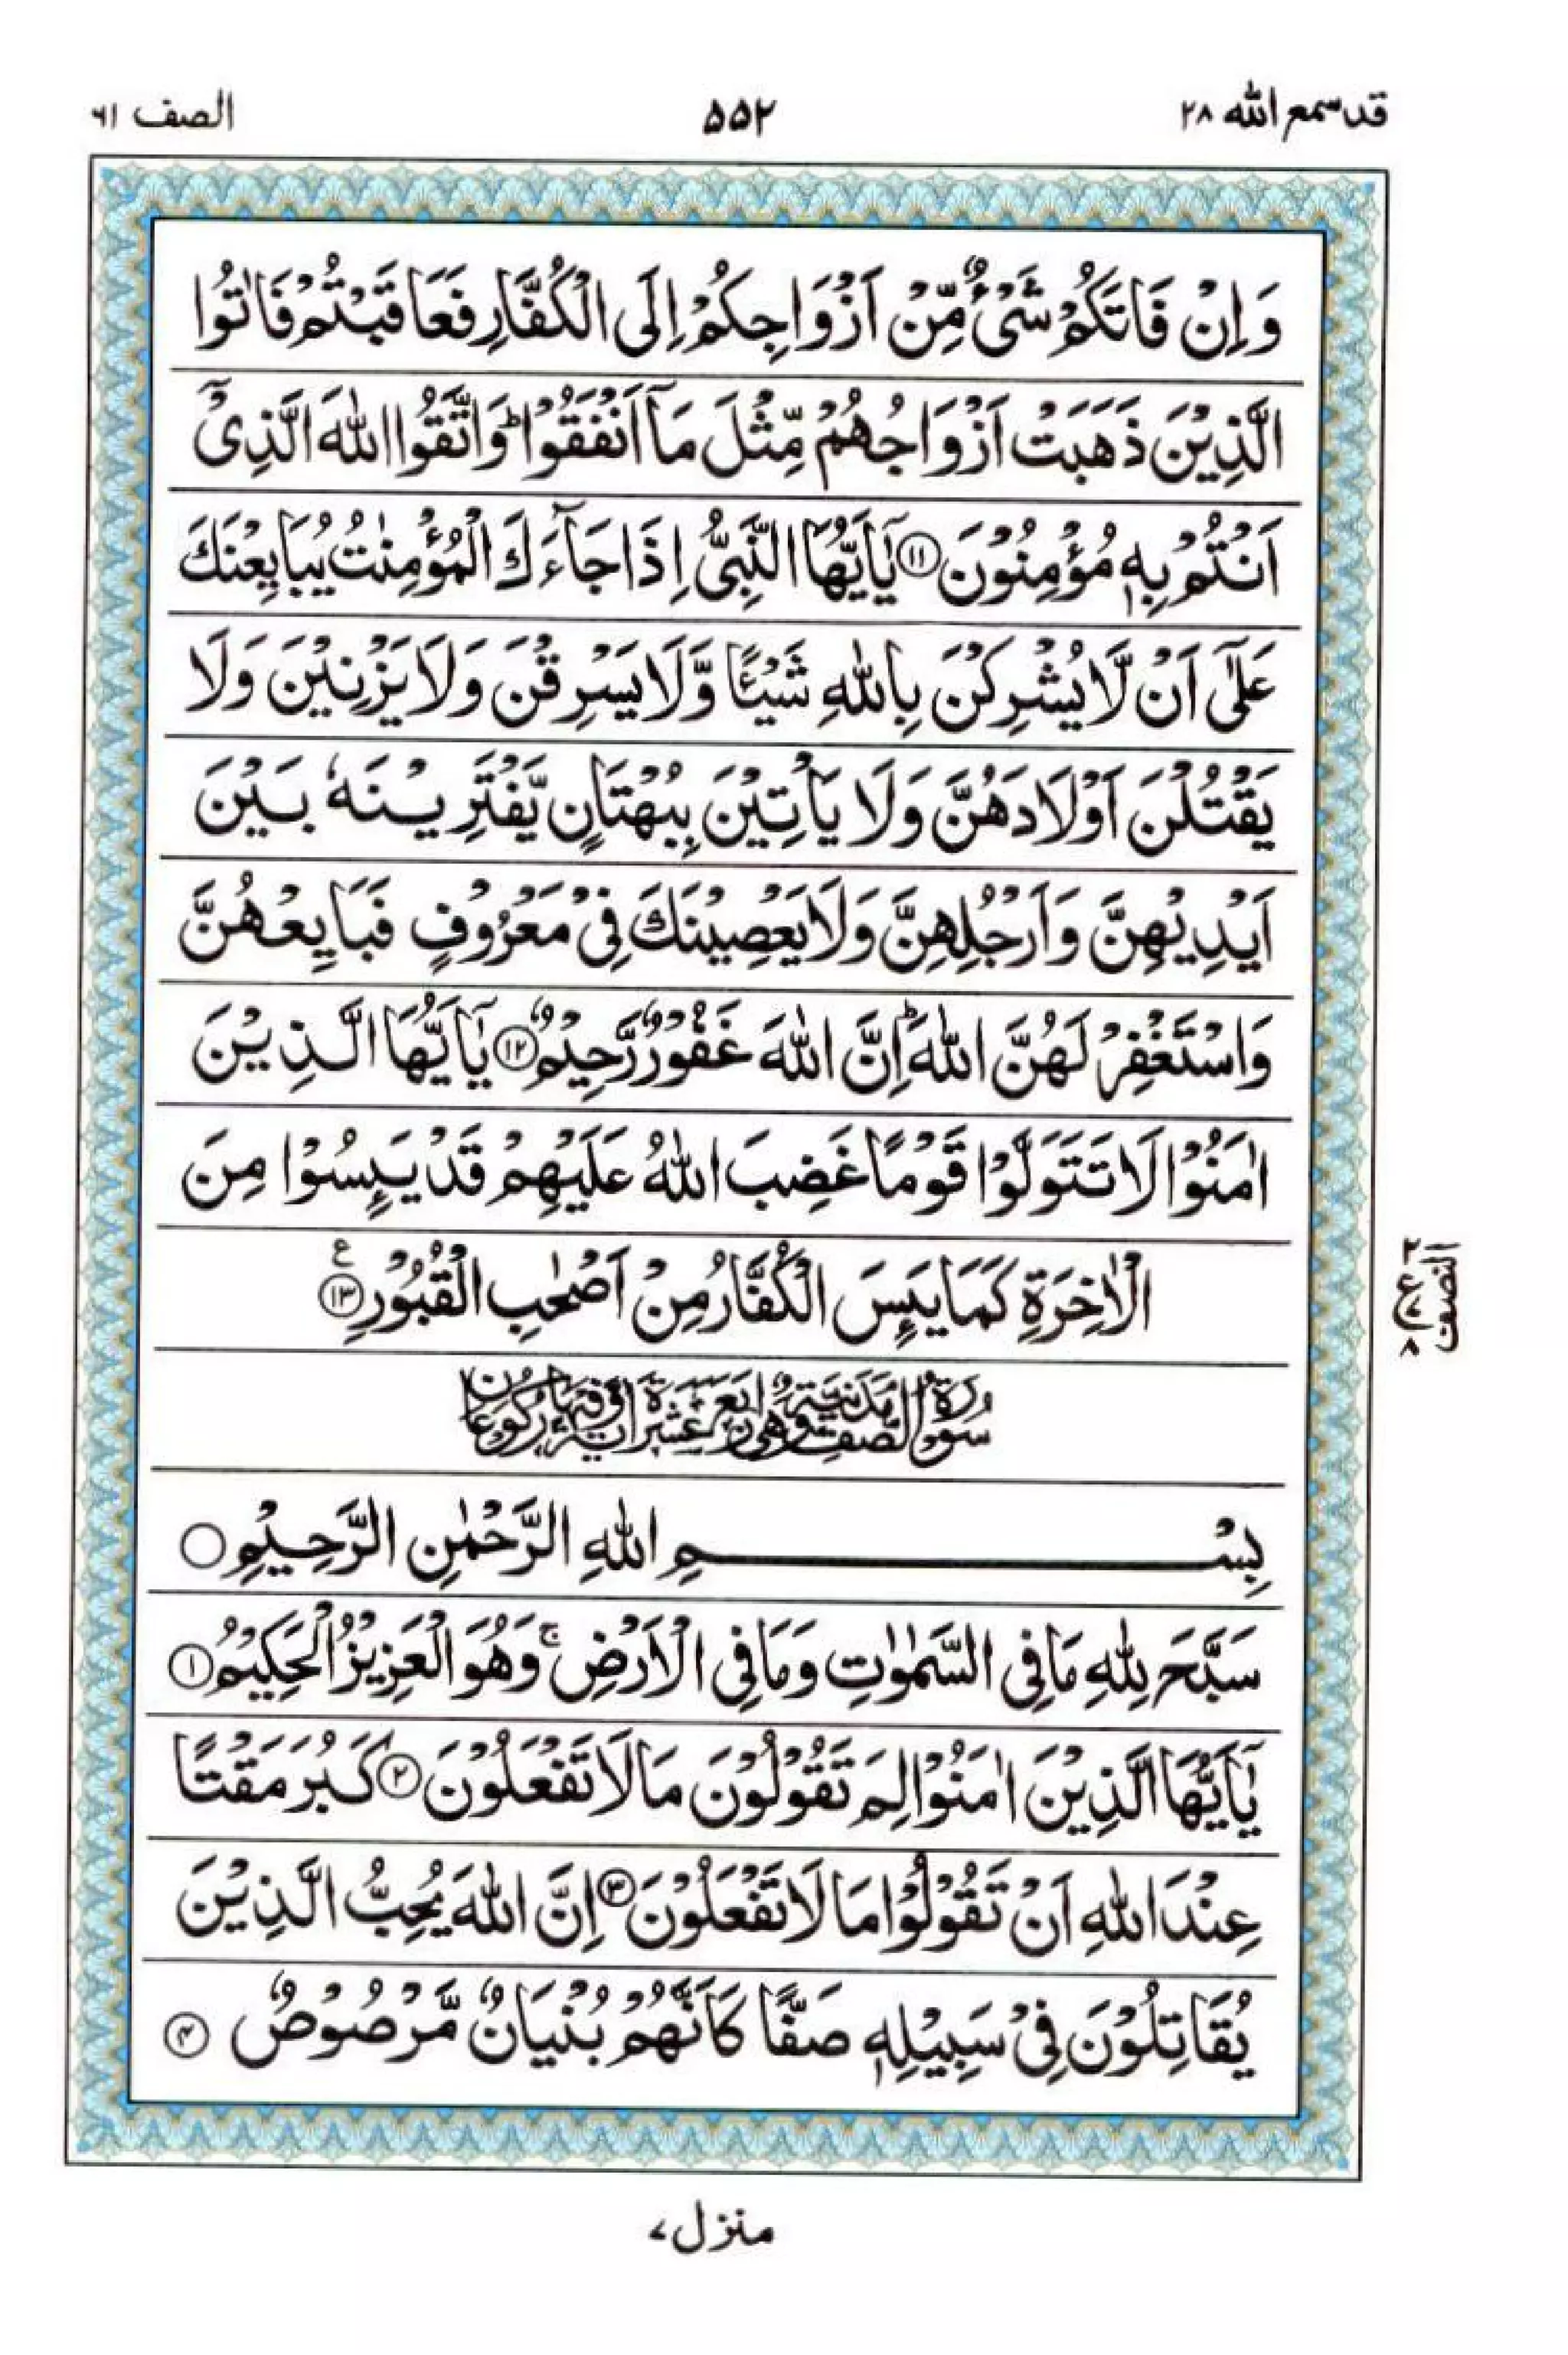 قد سمع الله ۲۸
۵۵۲
الصف ۶۱
وَاِنْ فَاتَكُمْ شَیْءٌ مِّنْ اَزْوَاجِكُمْ اِلَی الْكُفَّارِ فَعَاقَبْتُمْ فَاٰتُوا
الَّذِیْنَ ذَهَبَتْ اَزْوَاجُهُمْ مِّثْلَ مَاۤ اَنْفَقُوْا ؕ وَاتَّقُوا اللّٰهَ الَّذِیْۤ
اَنْتُمْ بِهٖ مُؤْمِنُوْنَ ۱۱ یٰۤاَیُّهَا النَّبِیُّ اِذَا جَآءَكَ الْمُؤْمِنٰتُ یُبَایِعْنَكَ
عَلٰۤی اَنْ لَّا یُشْرِكْنَ بِاللّٰهِ شَیْـًٔا وَّلَا یَسْرِقْنَ وَلَا یَزْنِیْنَ وَلَا
یَقْتُلْنَ اَوْلَادَهُنَّ وَلَا یَاْتِیْنَ بِبُهْتَانٍ یَّفْتَرِیْنَهٗ بَیْنَ
اَیْدِیْهِنَّ وَاَرْجُلِهِنَّ وَلَا یَعْصِیْنَكَ فِیْ مَعْرُوْفٍ فَبَایِعْهُنَّ
وَاسْتَغْفِرْ لَهُنَّ اللّٰهَ ؕ اِنَّ اللّٰهَ غَفُوْرٌ رَّحِیْمٌ ۱۲ یٰۤاَیُّهَا الَّذِیْنَ
اٰمَنُوْا لَا تَتَوَلَّوْا قَوْمًا غَضِبَ اللّٰهُ عَلَیْهِمْ قَدْ یَىِٕسُوْا مِنَ
الْاٰخِرَةِ كَمَا یَىِٕسَ الْكُفَّارُ مِنْ اَصْحٰبِ الْقُبُوْرِ ۱۳ ع
النصف
۲
ع
۷
۸
سُوْرَةُ الصَّفِّ مَدَنِیَّةٌ وَّهِیَ اَرْبَعَ عَشْرَةَ اٰیَةً وَّفِیْهَا رُكُوْعَانِ
بِسْمِ اللّٰهِ الرَّحْمٰنِ الرَّحِیْمِ
سَبَّحَ لِلّٰهِ مَا فِی السَّمٰوٰتِ وَمَا فِی الْاَرْضِ ۚ وَهُوَ الْعَزِیْزُ الْحَكِیْمُ ۱
یٰۤاَیُّهَا الَّذِیْنَ اٰمَنُوْا لِمَ تَقُوْلُوْنَ مَا لَا تَفْعَلُوْنَ ۲ كَبُرَ مَقْتًا
عِنْدَ اللّٰهِ اَنْ تَقُوْلُوْا مَا لَا تَفْعَلُوْنَ ۳ اِنَّ اللّٰهَ یُحِبُّ الَّذِیْنَ
یُقَاتِلُوْنَ فِیْ سَبِیْلِهٖ صَفًّا كَاَنَّهُمْ بُنْیَانٌ مَّرْصُوْصٌ ۴
منزل ۷